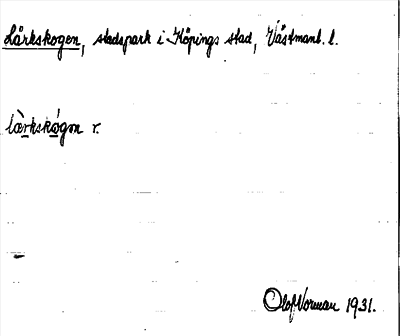 Lärkskogen, stadspark i Köpings stad, Västmanl. l.
lä̀rkskó̱gen r.
Olof Norman 1931.